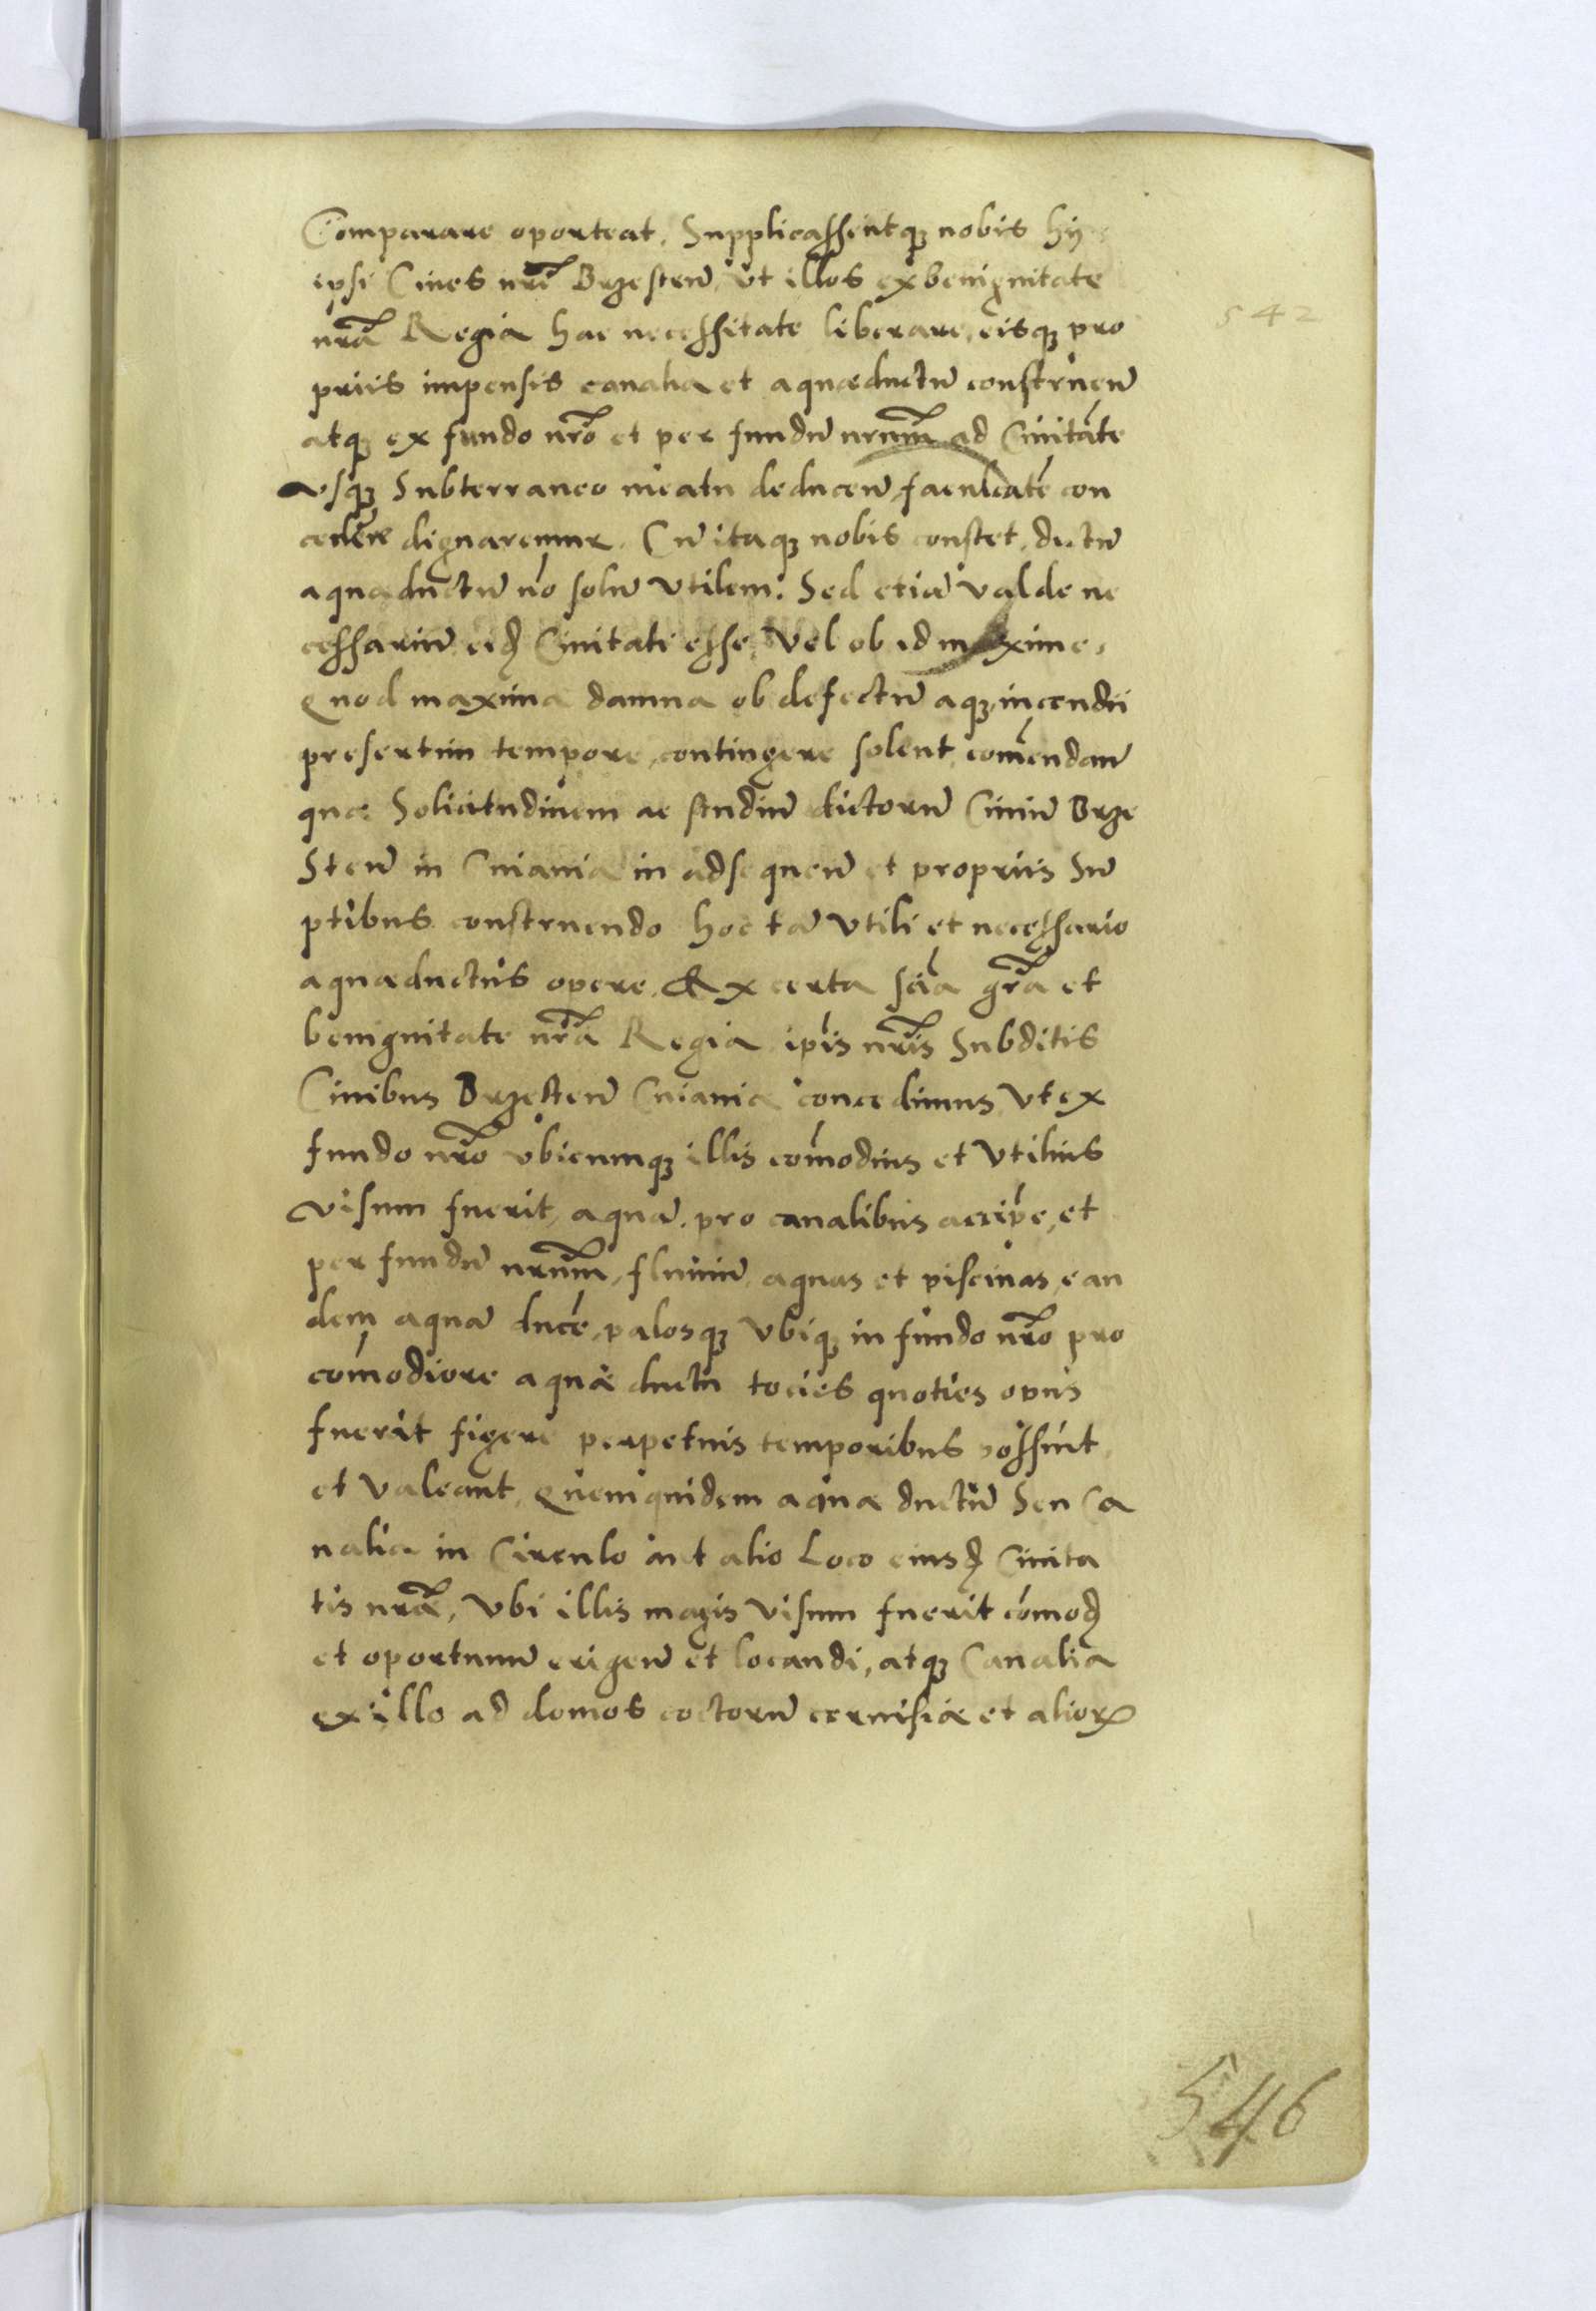 Comparare oporteat, Supplicassentq3 nobis hÿ
ipsi Ciues nrĩ Brzesteñ, vt illos ex benignitate
nrã Regia hac necessitate liberare, eisq3 pro
542
priis impensis canalia et aquæductũ construeñ
atq3 ex fundo nrõ et per fundũ nrũm ad Ciuitatẽ
vsq3 Subterraneo meatu deduceñ, facultatẽ con
cedere dignaremur. Cũ itaq3 nobis constet, dictũ
aquæductũ nõ solũ vtilem: Sed etiã valde ne
cessariũ eid̃ Ciuitati esse, vel ob id maxime,
Quod maxima damna ob defectũ aq3 incendii
presertim tempore, contingere solent, com̃endam̃
quæ Solicitudinem ac studiũ dictorũ Ciuiũ Brze
Steñ in Cuiauia in adsequeñ et propriis Sũ
ptibus construendo hoc tã vtili et necessario
aquæductus opere, Ex certa sciã grã et
benignitate nrã Regia ip̃is nrĩs Subditis
Ciuibus Brzesteñ Cuiauiæ concedimus, vt ex
fundo nrõ vbicumq3 illis com̃odius et vtilius
visum fuerit, aquã pro canalibus accip̃e, et
per fundũ nrũm, fluuiũ aquas et piscinas, ean
dem aquã ducẽ, palosq3 vbiq3 in fundo nrõ pro
com̃odiore aquæ ductu tocies quoties opus
fuerit figere perpetuis temporibus possint
et valeant, Quemquidem aquæ ductũ Seu Ca
nalia in Circulo aut alio Loco eiusd̃ Ciuita
tis nræ̃, vbi illis magis visum fuerit com̃od̃
et oportunũ erigeñ et locandi, atq3 Canalia
ex illo ad domos coctorũ ceruisiæ et alioꝝ
546